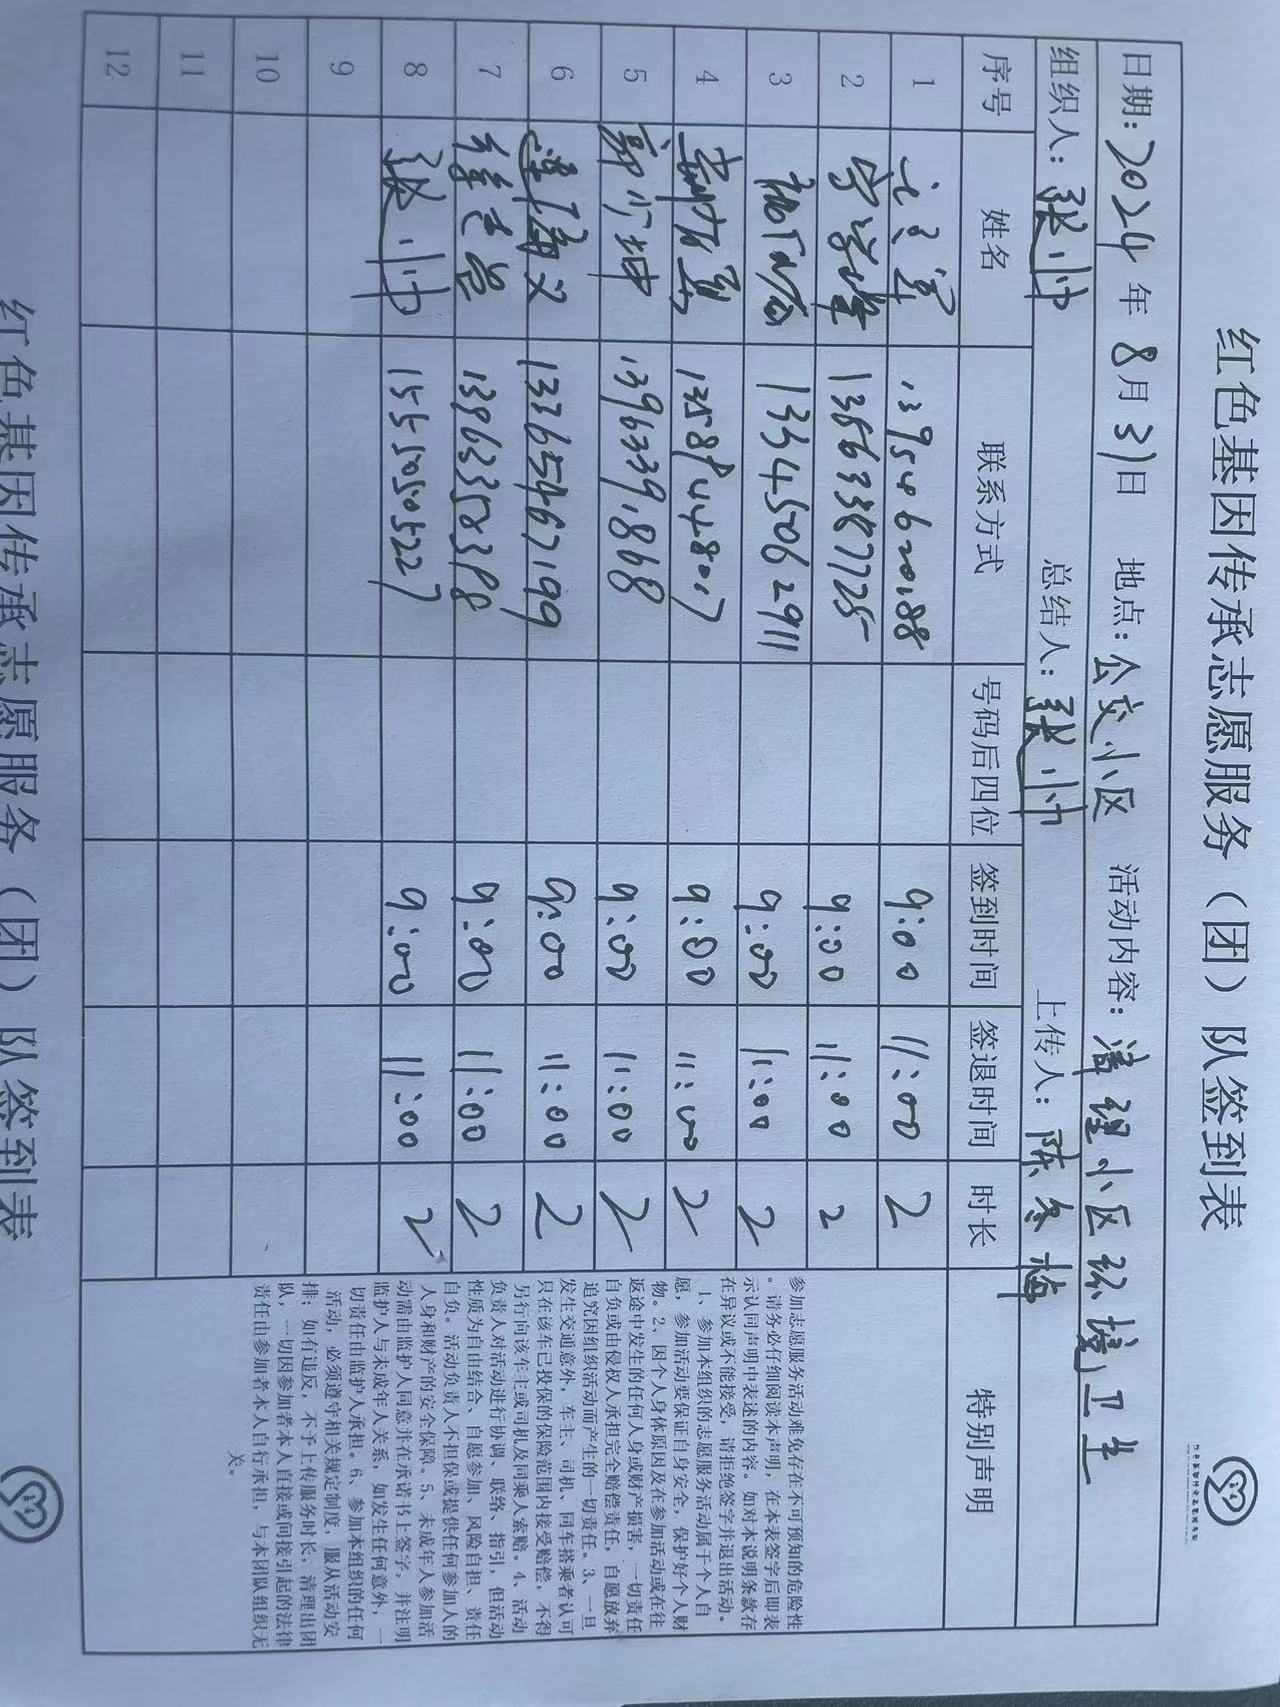 红色基因传承志愿服务（团）队签到表
日期：2024年8月31日 地点：公交小区 活动内容：清理小区环境卫生
组织人：张小帅 总结人：张小帅 上传人：陈冬梅
序号 姓名 联系方式 号码后四位 签到时间 签退时间 时长 特别声明
1 13954620188 9:00 11:00 2
2 13563387725 9:00 11:00 2
3 13345062911 9:00 11:00 2
4 13589448017 9:00 11:00 2
5 郭小坤 13963391868 9:00 11:00 2
6 13365467199 9:00 11:00 2
7 13963358398 9:00 11:00 2
8 张小帅 15550505227 9:00 11:00 2
9
10
11
12
参加志愿服务活动难免存在不可预知的危险性
。请务必仔细阅读本声明，在本表签字后即表
示认同声明中表述的内容。如对本说明条款存
在异议或不能接受，请拒绝签字并退出活动。
1、参加本组织的志愿服务活动属于个人自
愿，参加活动要保证自身安全，保护好个人财
物。2、因个人身体原因及在参加活动或在往
返途中发生的任何人身或财产损害，一切责任
自负或由侵权人承担完全赔偿责任，自愿放弃
追究因组织活动而产生的一切责任。3、一旦
发生交通意外，车主、司机、同车搭乘者认可
只在该车已投保的保险范围内接受赔偿，不得
另行向该车主或司机及同乘人索赔。4、活动
负责人对活动进行协调、联络、指引，但活动
性质为自由结合、自愿参加、风险自担、责任
自负。活动负责人不担保或提供任何参加人的
人身和财产的安全保障。5、未成年人参加活
动需由监护人同意并在承诺书上签字，并注明
监护人与未成年人关系，如发生任何意外，一
切责任由监护人承担。6、参加本组织的任何
活动，必须遵守相关规定制度，服从活动安
排；如有违反，不予上传服务时长，清理出团
队，一切因参加者本人直接或间接引起的法律
责任由参加者本人自行承担，与本团队组织无
关。
红色基因传承志愿服务（团）队签到表